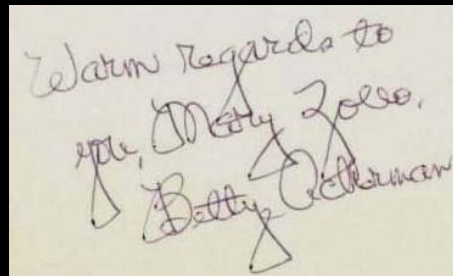 Warm regards to
you, Mary Zoleo.
Betty Ackerman